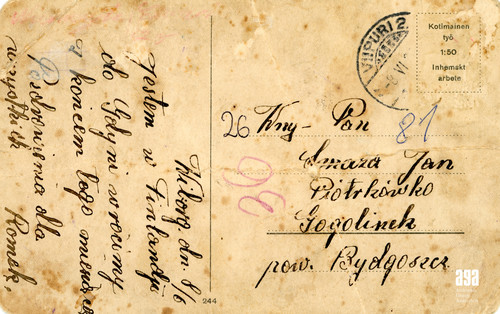 Wiborg dn. 8/6
Jestem w Finlandji
do Gdyni wrócimy
z końcem tego
Pozdrowienia dla
wszystkich Romek
VIIPURI 2.
VI
Kotimainen
työ
1:50
Inhemskt
arbete
26
Wny - Pan
81
Smaza Jan
Piotrkówko
Gogolinek
pow. Bydgoszcz
244
aga